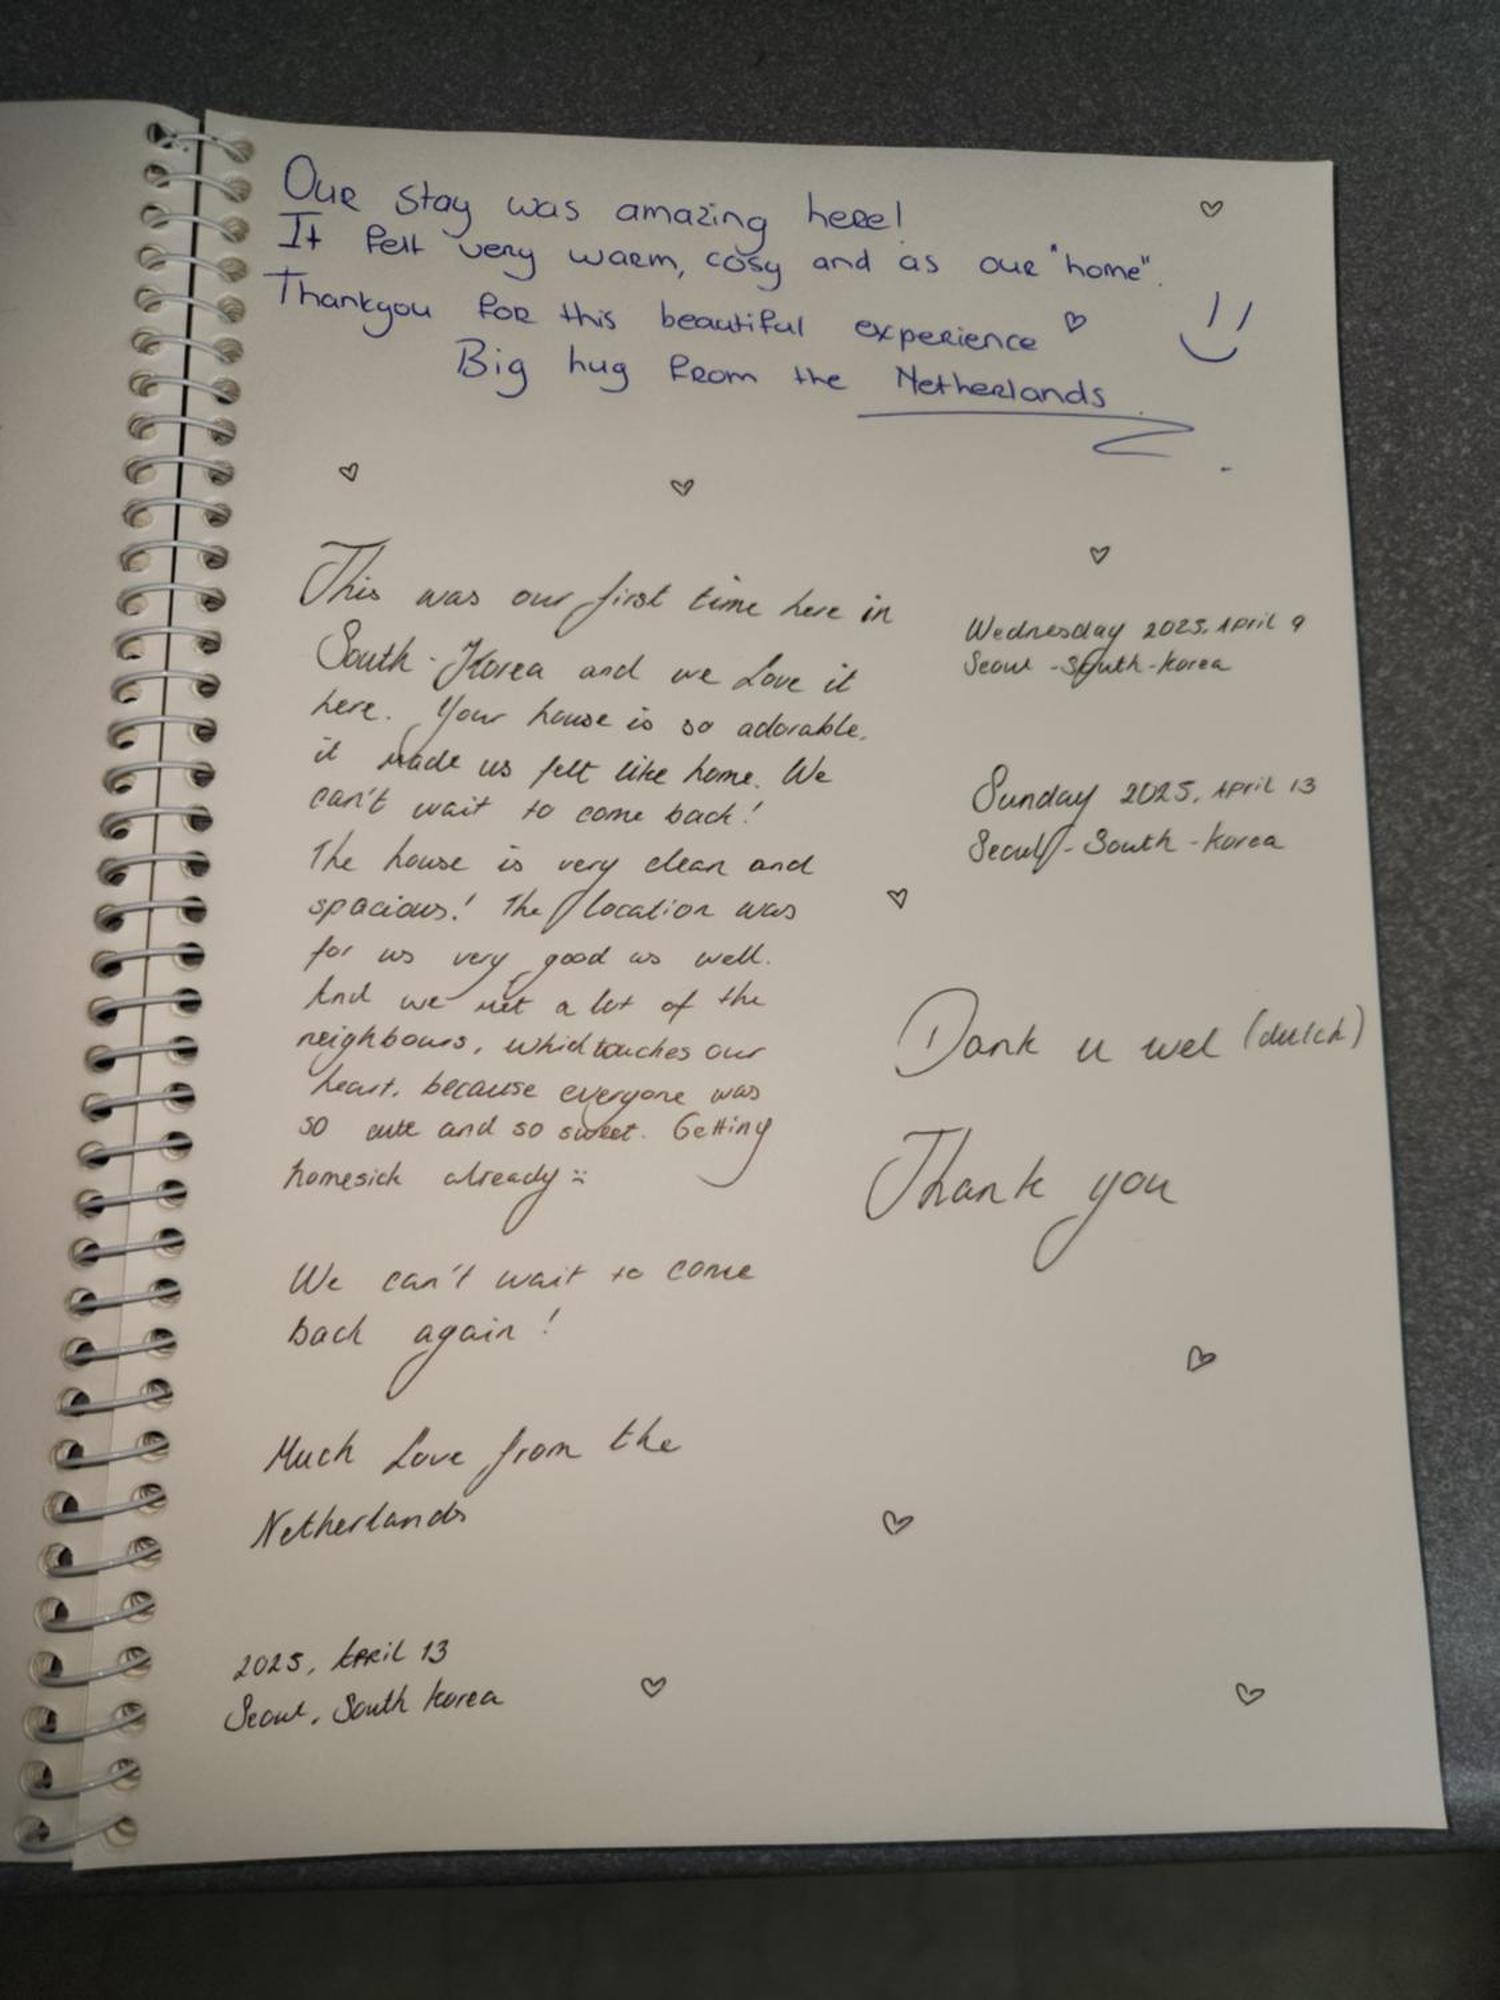 Our stay was amazing here!
It felt very warm, cosy and as our "home".
Thankyou for this beautiful experience
Big hug from the Netherlands
This was our first time here in
South-Korea and we love it
here. Your house is so adorable,
it made us felt like home. We
can't wait to come back!
The house is very clean and
spacious! The location was
for us very good as well.
And we met a lot of the
neighbours, which touches our
heart, because everyone was
so cute and so sweet. Getting
homesick already :(
We can't wait to come
back again!
Much Love from the
Netherlands
2025, April 13
Seoul, South Korea
Wednesday 2025, April 9
Seoul - South - Korea
Sunday 2025, April 13
Seoul - South - Korea
Dank u wel (dutch)
Thank you